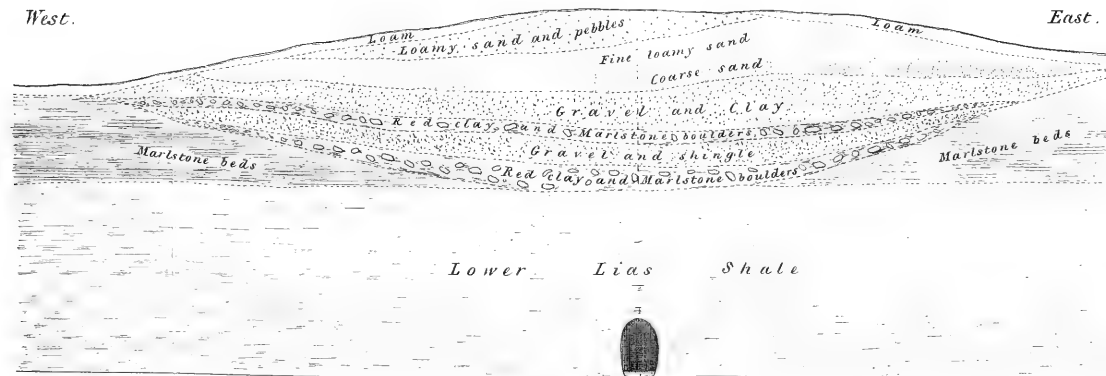 West.
East.
Loam
Loam
Loamy sand and pebbles
Fine loamy sand
Coarse sand
Gravel and Clay
Red clay and Marlstone boulders
Gravel and shingle
Marlstone beds
Marlstone beds
Red clay and Marlstone boulders
Lower Lias Shale